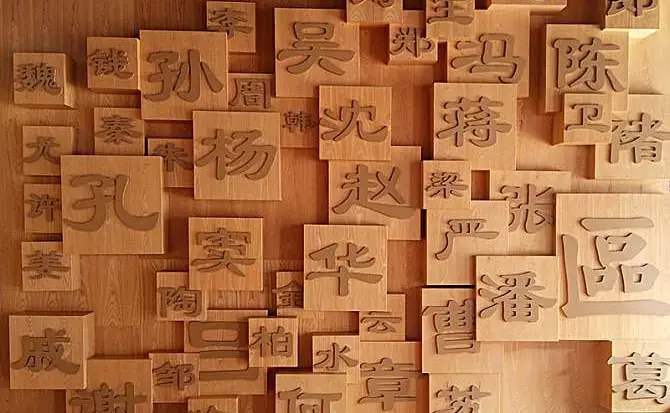 李
吴
郑
冯
陈
魏
钱
孙
周
韩
沈
蒋
卫
褚
尤
秦
朱
杨
赵
梁
张
许
孔
严
姜
窦
华
區
陶
金
潘
云
曹
戚
柏
水
邹
章
葛
谢
何
苏